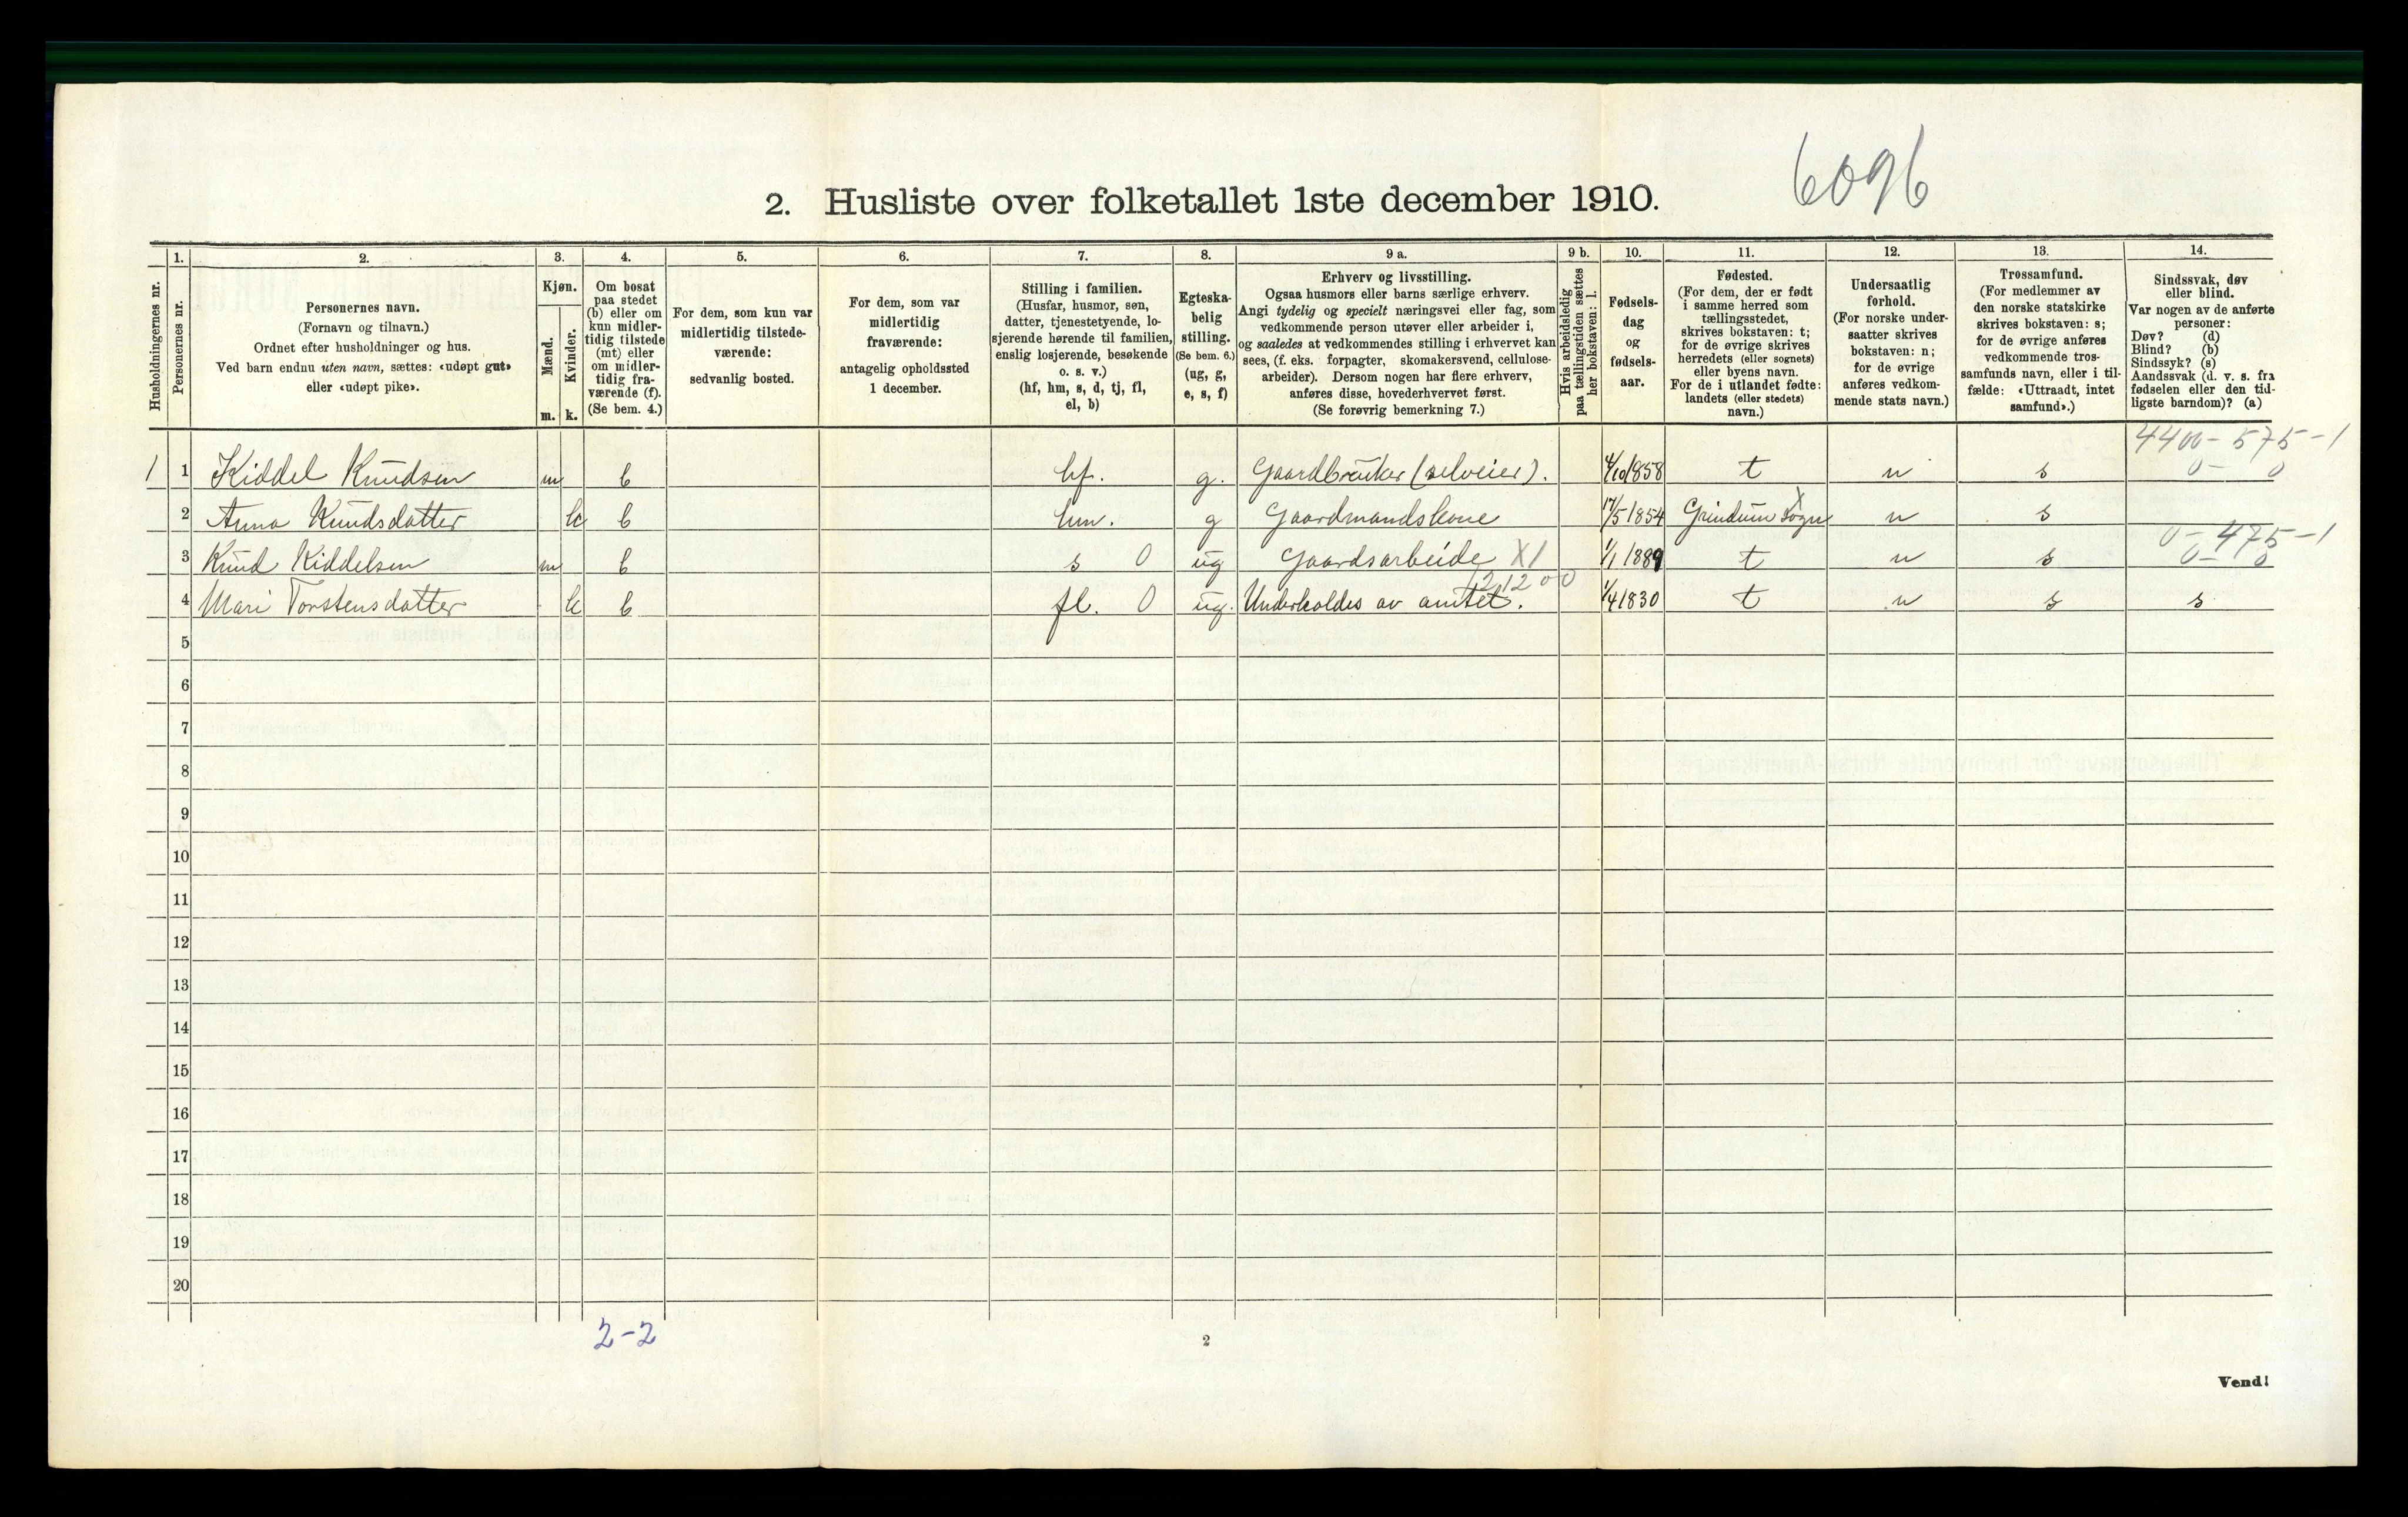 6096
2. Husliste over folketallet 1ste december 1910.
Husholdningernes nr.
1.
Personernes nr.
2.
Personernes navn.
(Fornavn og tilnavn.)
Ordnet efter husholdninger og hus.
Ved barn endnu uten navn, sættes: «udøpt gut»
eller «udøpt pike».
3.
Kjøn.
Mænd.
Kvinder.
m. k.
4.
Om bosat
paa stedet
(b) eller om
kun midler-
tidig tilstede
(mt) eller
om midler-
tidig fra-
værende (f).
(Se bem. 4.)
5.
For dem, som kun var
midlertidig tilstede-
værende:
sedvanlig bosted.
6.
For dem, som var
midlertidig
fraværende:
antagelig opholdssted
1 december.
7.
Stilling i familien.
(Husfar, husmor, søn,
datter, tjenestetyende, lo-
sjerende hørende til familien,
enslig losjerende, besøkende
o. s. v.)
(hf, hm, s, d, tj, fl,
el, b)
8.
Egteska-
belig
stilling.
(Se bem. 6.)
(ug, g,
e, s, f)
9 a.
Erhverv og livsstilling.
Ogsaa husmors eller barns særlige erhverv.
Angi tydelig og specielt næringsvei eller fag, som
vedkommende person utøver eller arbeider i,
og saaledes at vedkommendes stilling i erhvervet kan
sees, (f. eks. forpagter, skomakersvend, cellulose-
arbeider). Dersom nogen har flere erhverv,
anføres disse, hovederhvervet først.
(Se forøvrig bemerkning 7.)
9 b.
Hvis arbeidsledig
paa tællingstiden sættes
her bokstaven: l.
10.
Fødsels-
dag
og
fødsels-
aar.
11.
Fødested.
(For dem, der er født
i samme herred som
tællingsstedet,
skrives bokstaven: t;
for de øvrige skrives
herredets (eller sognets)
eller byens navn.
For de i utlandet fødte:
landets (eller stedets)
navn.)
12.
Undersaatlig
forhold.
(For norske under-
saatter skrives
bokstaven: n;
for de øvrige
anføres vedkom-
mende stats navn.)
13.
Trossamfund.
(For medlemmer av
den norske statskirke
skrives bokstaven: s;
for de øvrige anføres
vedkommende tros-
samfunds navn, eller i til-
fælde: «Uttraadt, intet
samfund».)
14.
Sindssvak, døv
eller blind.
Var nogen av de anførte
personer:
Døv? (d)
Blind? (b)
Sindssyk? (s)
Aandssvak (d. v. s. fra
fødselen eller den tid-
ligste barndom)? (a)
4400-575-1
1 1 Kiddel Knudsen m b hf. g. Gaardbruker (selveier). 4/10 1858 t n s 0- 0
2 Anna Knudsdatter k b hm. g Gaardmandskone 17/5 1854 Grindum sogn X n s
0-475-1
3 Knud Kiddelsen m b s 0 ug Gaardsarbeide X1 1/1 1889 t n s 0- 0
121200
4 Mari Torstensdatter k b fl. 0 ug. Underholdes av amtet. 1/4 1830 t n s s
5
6
7
8
9
10
11
12
13
14
15
16
17
18
19
20
2-2
2
Vend!